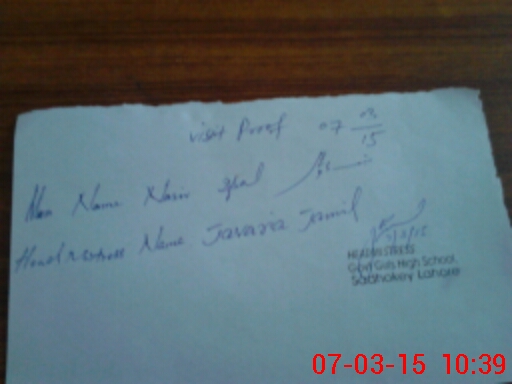 Visit Proof 07 03/15
Mea Name Nasir Iqbal
Headmistress Name Javaria Jamil
HEADMISTRESS
Govt Girls High School,
Sabhokey Lahore
07-03-15 10:39